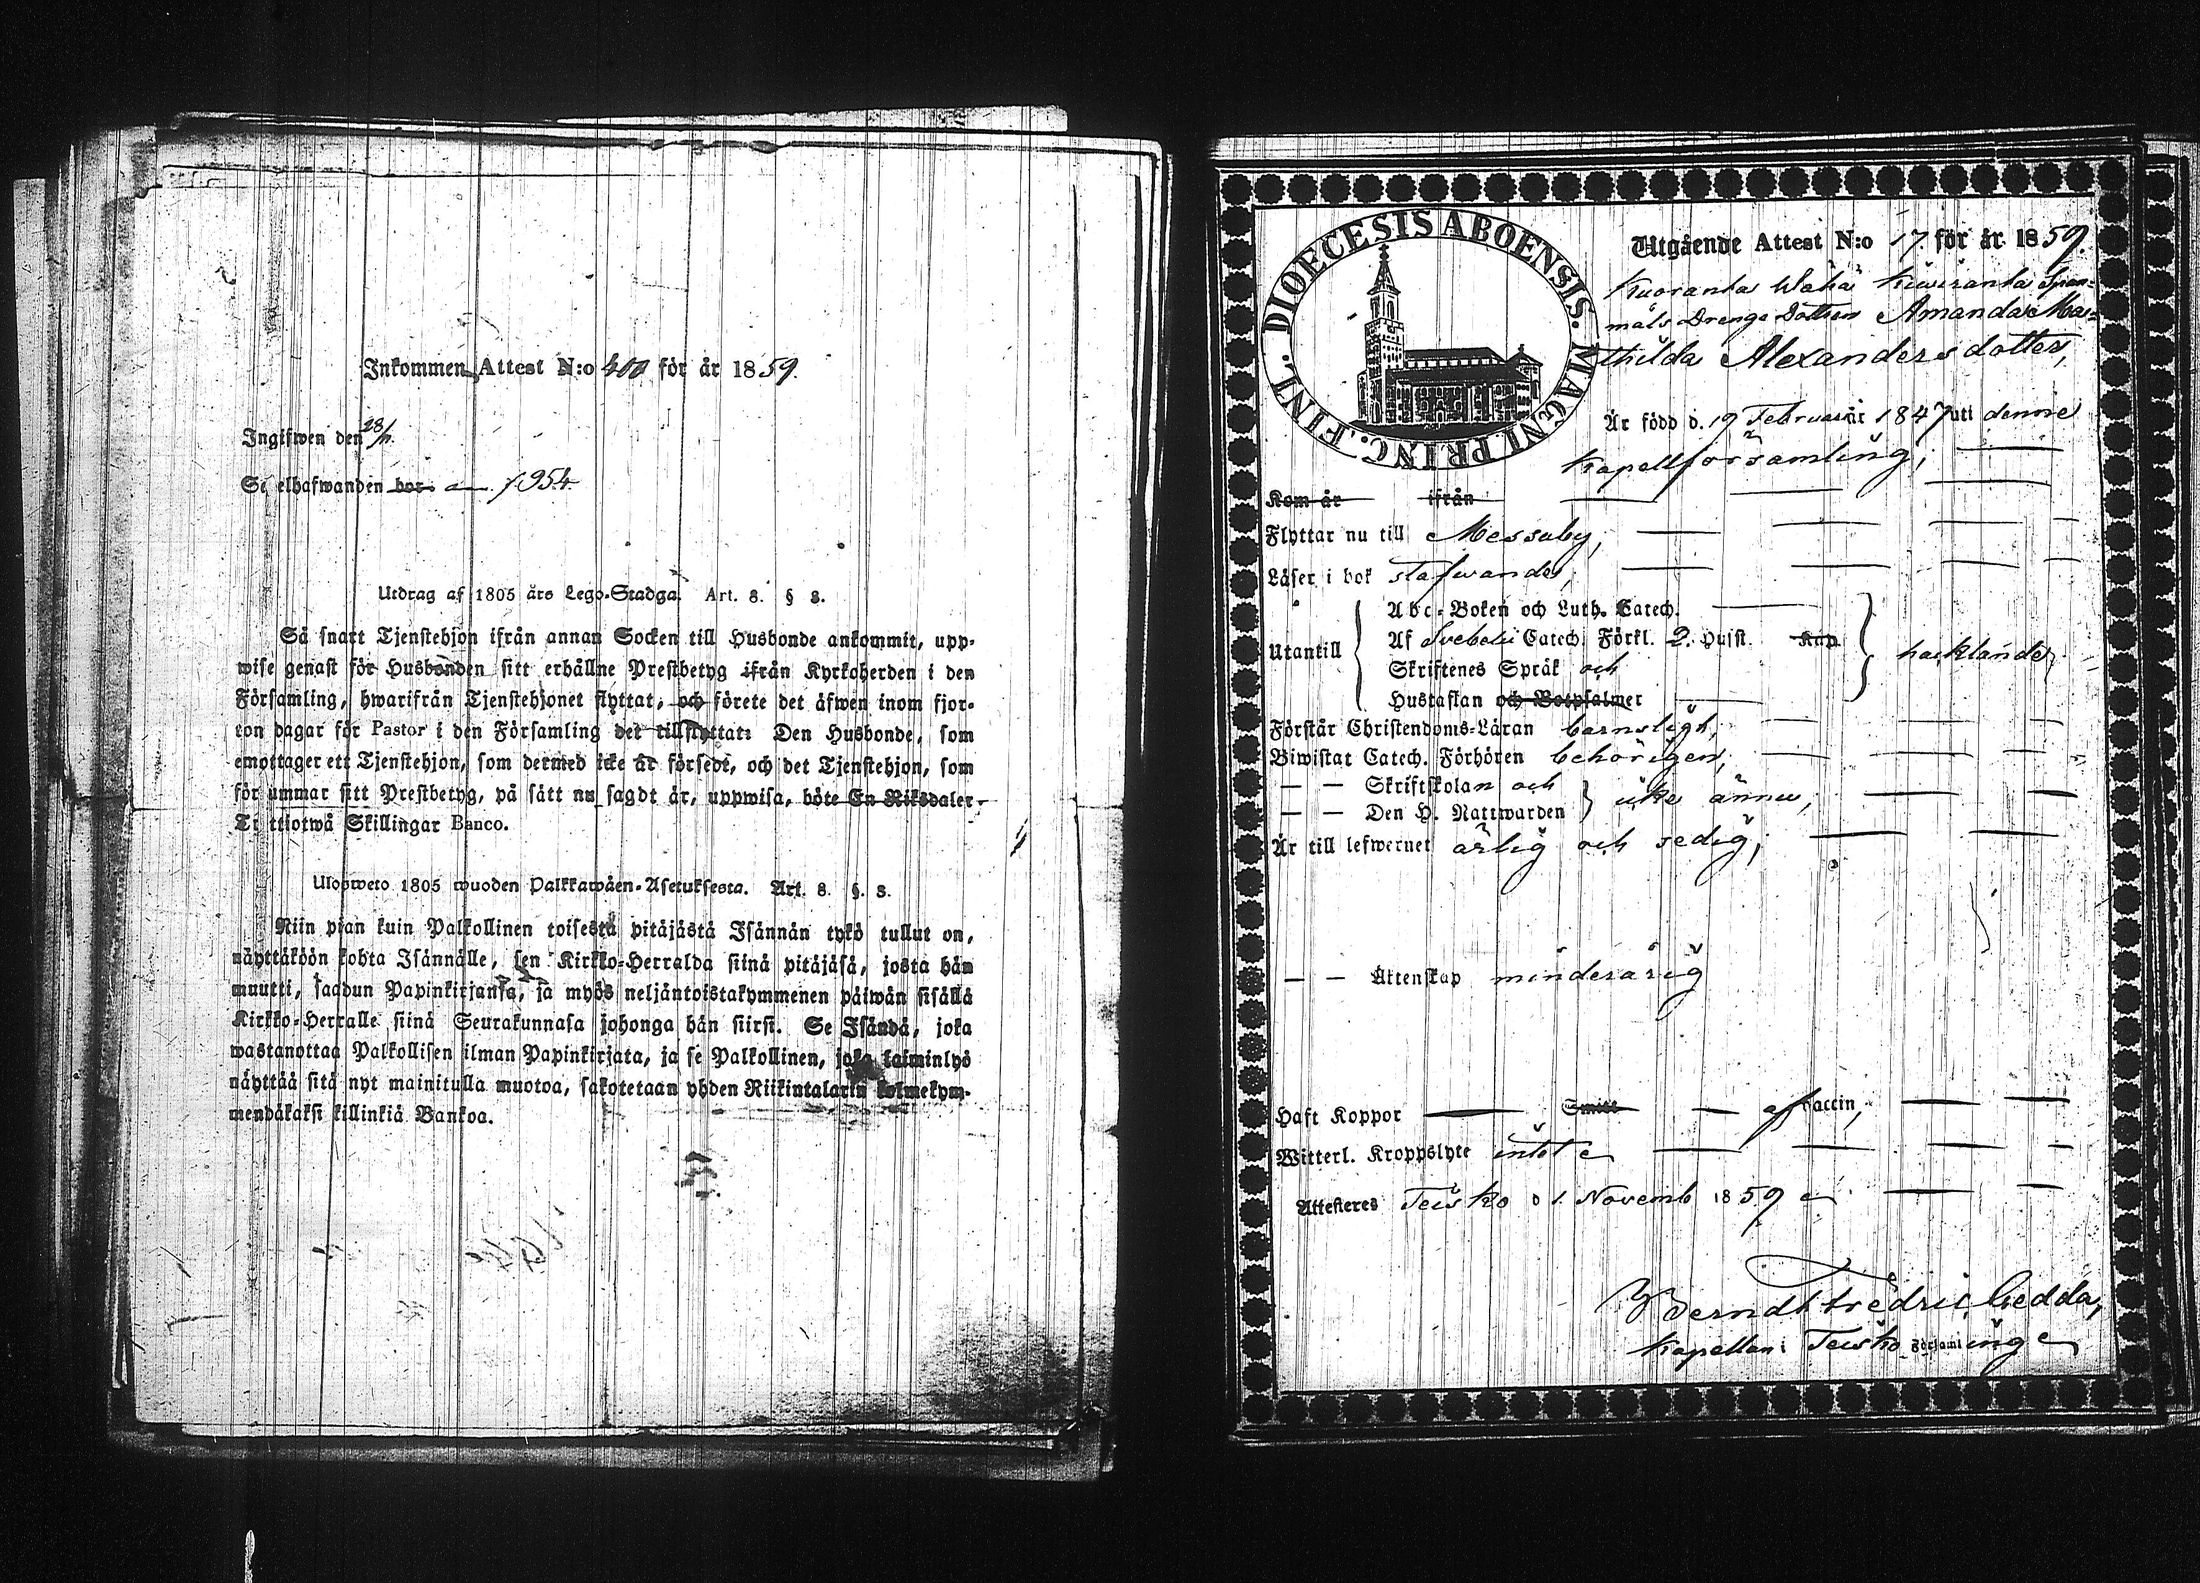 Inkommen Attest N:o 400 för år 1859.
Ingifwen den 28/11.
Sielhafwanden bor a f 954.
Utdrag af 1805 års Lego-Stadga. Art. 8. § 8.
Så snart Tjenstehjon ifrån annan Socken till Husbonde ankommit, upp-
wise genast för Husbonden sitt erhållne Prestbetyg ifrån Kyrkoherden i den
Församling, hwarifrån Tjenstehjonet flyttat, och förete det äfwen inom fjor-
ton dagar för Pastor i den Församling det tillflyttat: Den Husbonde, som
emottager ett Tjenstehjon, som dermed icke är försedt, och det Tjenstehjon, som
för ummar sitt Prestbetyg, på sätt nu sagdt är, uppwisa, böte En Riksdaler
Tr ttiotwå Skillingar Banco.
Ulosweto 1805 wuoden Palkkawäen-Asetuksesta. Art. 8. §. 8.
Niin pian kuin Palkollinen toisesta pitäjästä Isännän tykö tullut on,
näyttäköön kohta Isännälle, sen Kirkko-Herralda siinä pitäjäsä, josta hän
muutti, saadun Papinkirjansa, ja myös neljäntoistakymmenen päiwän sisällä
Kirkko-Herralle siinä Seurakunnasa johonga hän siirsi. Se Isändä, joka
wastanottaa Palkollisen ilman Papinkirjata, ja se Palkollinen, joka laiminlyö
näyttää sitä nyt mainitulla muotoa, sakotetaan yhden Riikintalarin kolmekym-
mendäkaksi killinkiä Bankoa.
DIOECESIS ABOENSIS. MAGNI PRINC. FINL.
Utgående Attest N:o 17 för år 1859.
Kuoranta Wähä Kuuranta Span-
måls Drenge Dottren Amanda Ma-
thilda Alexandersdotter,
Är född d. 19 Februarii år 1847 uti denne
Kapellförsamling;
Kom år ifrån
Flyttar nu till Messuby,
Läser i bok stafwandes,
Utantill
Abc-Boken och Luth. Catech.
Af Svebelii Catech. Förkl. 2. Hufst. Kap
Skriftenes Språk och
Hustaflan och Botpsalmer
hacklande;
Förstår Christendoms-Läran barnsligt,
Biwistat Catech. Förhören behörigen,
— — Skriftskolan och
— — Den H. Nattwarden
icke ännu,
Är till lefwernet ärlig och sedig,
— — Ättenskap minderårig
Haft Koppor Smitt af Vaccin,
Witterl. Kroppslyte intet
Attesteres Teisko d 1. Novemb 1859
Berndt Fredric Gedda,
Kapellan i Teisko Församling